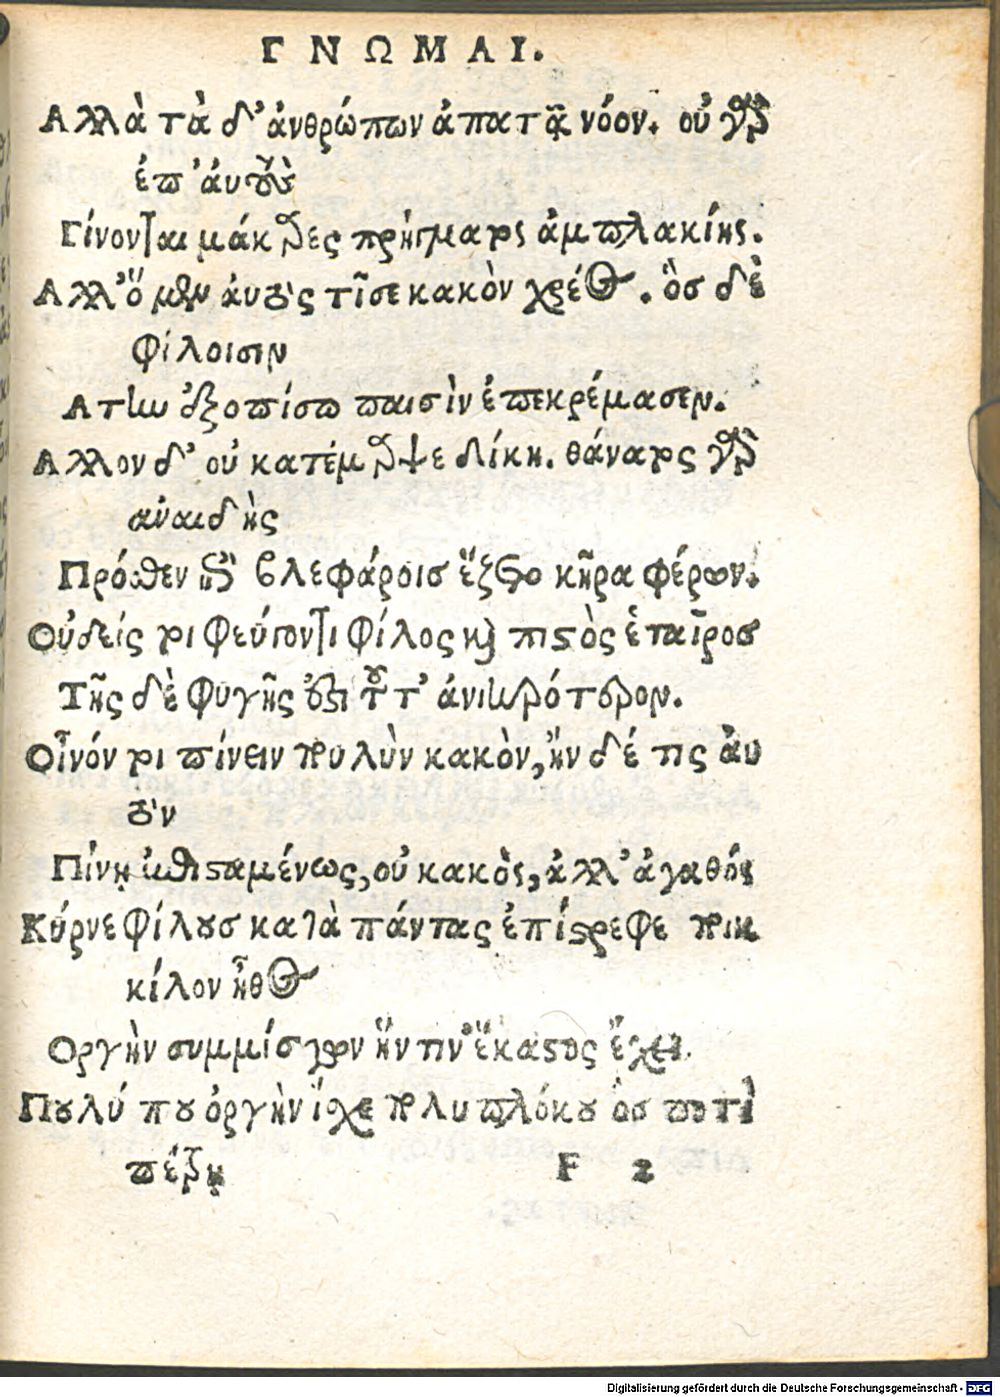 ΓΝΩΜΑΙ.
Αλλὰ τὰ δ' ἀνθρώπων ἀπατᾷ νόον. οὐ γὰρ
ἐπ' ἀυτοὺς
Γίνονται μάκαρες πρήγματος ἀμπλακίης.
Αλλ' ὅ μὲν ἀυτὸς τῖσε κακὸν χρέος. ὃσ δὲ
φίλοισιν
Ατην ἐξοπίσω παισὶν ἐπεκρέμασεν.
Αλλον δ' οὐ κατέμαρψε δίκη. θάνατος γὰρ
ἀναιδὴς
Πρόσθεν ἐπὶ βλεφάροισ ἕζετο κῆρα φέρων.
Οὐδείς τοι φεύγοντι φίλος καὶ πιστὸς ἑταῖροσ
Τῆς δὲ φυγῆς ἐστι τοῦτ' ἀνιηρότερον.
Οἶνόν τοι πίνειν πουλὺν κακὸν, ἢν δέ τις ἀυ
τὸν
Πίνῃ ἐπισταμένως, οὐ κακὸς, ἀλλ' ἀγαθός
Κύρνε φίλουσ κατὰ πάντας ἐπίστρεφε ποικ
κίλον ἦθος
Οργὴν συμμίσγων ἥν τιν' ἕκαστος ἔχει.
Πουλύ που ὀργὴν ἴσχε πολυπλόκου ὁσ ποτὶ
πέτρῃ
F 2
Digitalisierung gefördert durch die Deutsche Forschungsgemeinschaft - DFG